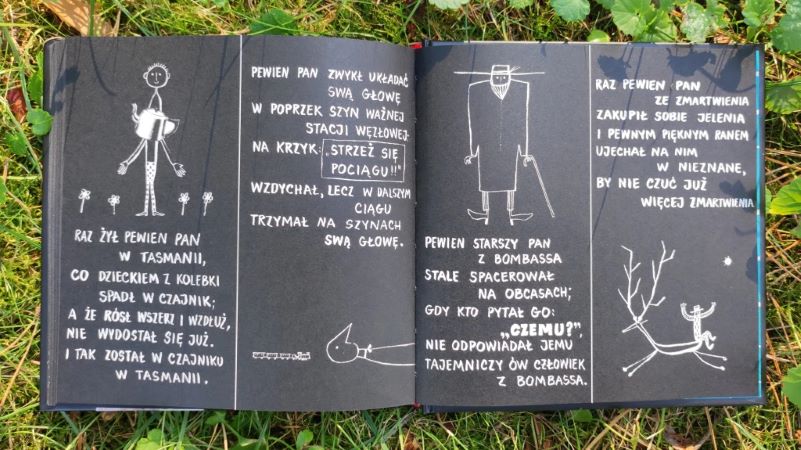 RAZ ŻYŁ PEWIEN PAN
W TASMANII,
CO DZIECKIEM Z KOLEBKI
SPADŁ W CZAJNIK;
A ŻE RÓSŁ WSZERZ I WZDŁUŻ,
NIE WYDOSTAŁ SIĘ JUŻ.
I TAK ZOSTAŁ W CZAJNIKU
W TASMANII.
PEWIEN PAN ZWYKŁ UKŁADAĆ
SWĄ GŁOWĘ
W POPRZEK SZYN WAŻNEJ
STACJI WĘZŁOWEJ.
NA KRZYK: „STRZEŻ SIĘ
POCIĄGU!!"
WZDYCHAŁ, LECZ W DALSZYM
CIĄGU
TRZYMAŁ NA SZYNACH
SWĄ GŁOWĘ.
PEWIEN STARSZY PAN
Z BOMBASSA
STALE SPACEROWAŁ
NA OBCASACH;
GDY KTO PYTAŁ GO:
„CZEMU?",
NIE ODPOWIADAŁ JEMU
TAJEMNICZY ÓW CZŁOWIEK
Z BOMBASSA.
RAZ PEWIEN PAN
ZE ZMARTWIENIA
ZAKUPIŁ SOBIE JELENIA
I PEWNYM PIĘKNYM RANEM
UJECHAŁ NA NIM
W NIEZNANE,
BY NIE CZUĆ JUŻ
WIĘCEJ ZMARTWIENIA